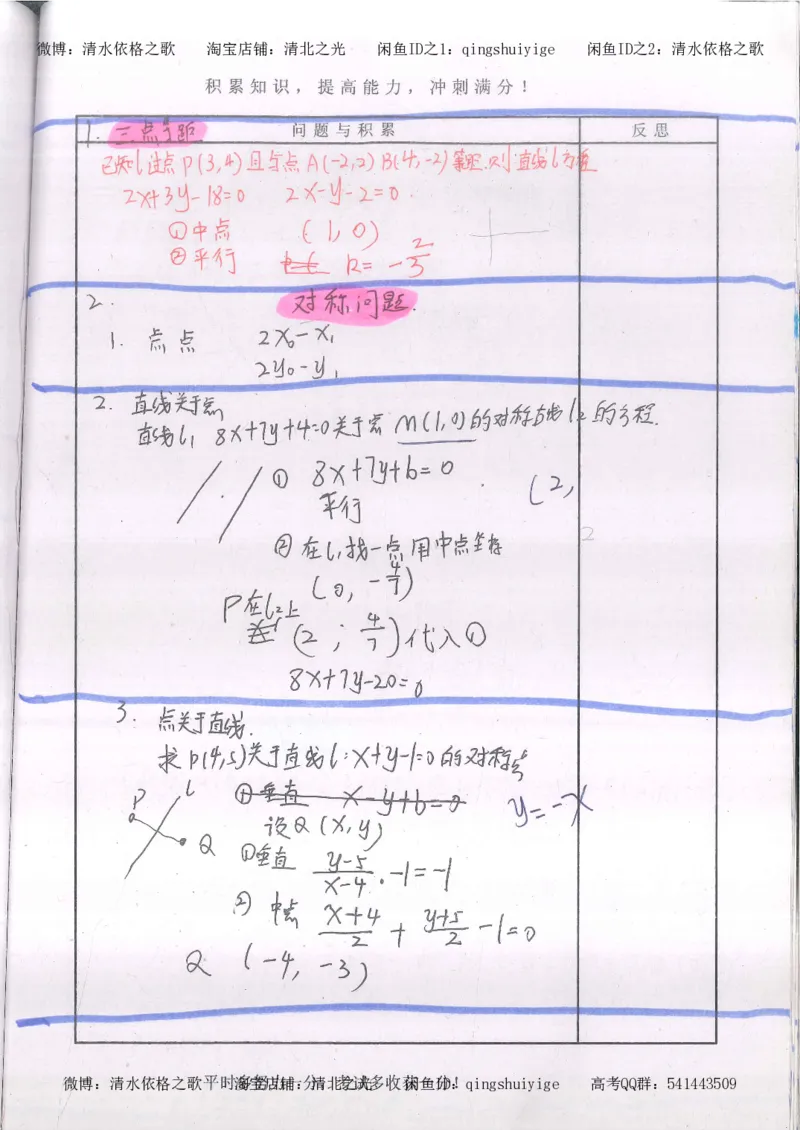 微博：清水依格之歌 淘宝店铺：清北之光 闲鱼ID之1：qingshuiyige 闲鱼ID之2：清水依格之歌
积累知识，提高能力，冲刺满分！
问题与积累 反思
1. 三点等距
已知l过点P(3,4)且与点A(-2,2)B(4,-2)等距.则直线l方程
2x+3y-18=0 2x-y-2=0.
①中点 (1,0)
②平行 k=-2/3
2. 对称问题.
1. 点点 2x₀-x₁
2y₀-y₁
2. 直线关于点
直线l₁ 8x+7y+4=0关于点M(1,0)的对称直线l₂的方程.
① 8x+7y+b=0
平行
(2,
② 在l₁找一点用中点坐标
2
(0, -4/7)
P在l₂上
(2, 4/7)代入①
8x+7y-20=0
3. 点关于直线.
找P(4,5)关于直线l:x+y-1=0的对称点
P l
①垂直 x-y+b=0
y=-x
设Q(x,y)
Q
①垂直 y-5/x-4·-1=-1
② 中点 x+4/2+y+5/2-1=0
Q (-4,-3)
微博：清水依格之歌 淘宝店铺：清北之光 闲鱼ID：qingshuiyige 高考QQ群：541443509